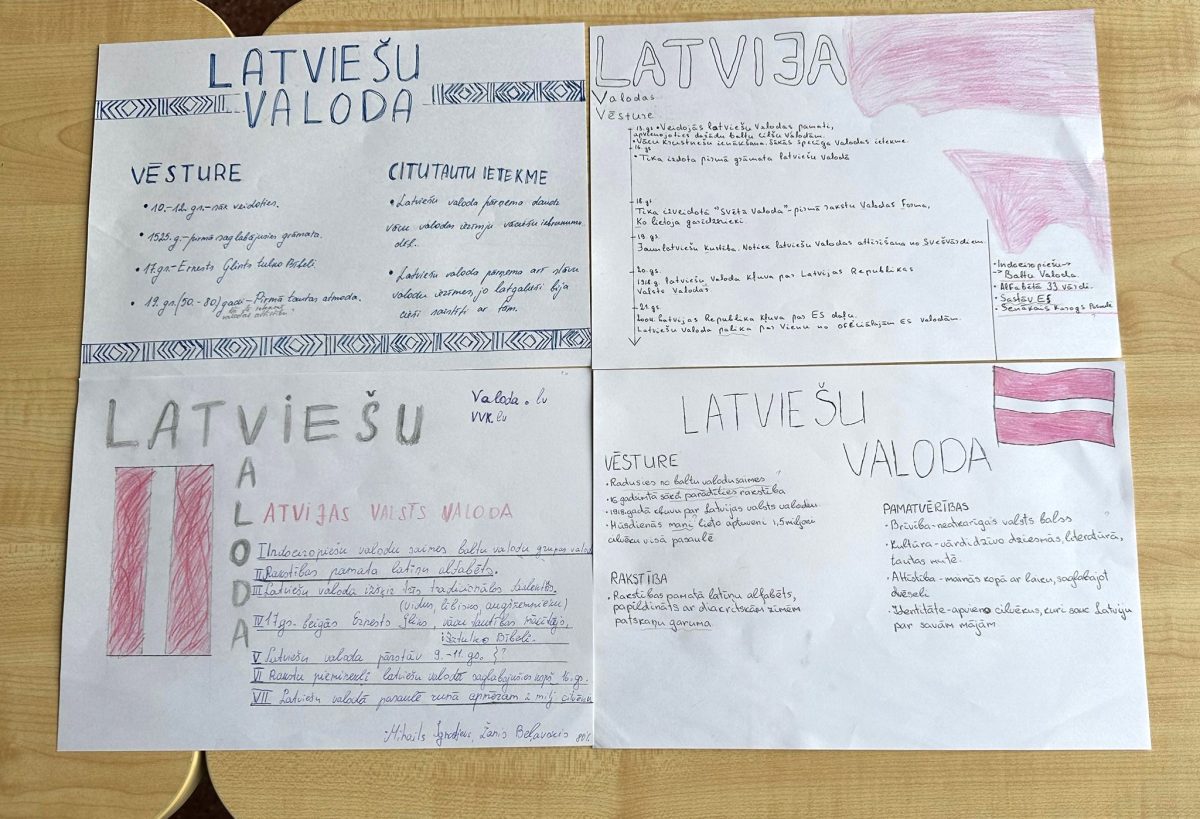 LATVIEŠU
VALODA
VĒSTURE
• 10.-12. gs.- sāk veidoties.
• 1525.g.-pirmā saglabājusies grāmata.
• 17.gs.- Ernests Gliks tulko Bībeli.
• 19. gs. (50.-80) gadi - Pirmā tautas atmoda.
CITU TAUTU IETEKME
• Latviešu valoda pārņema daudz
vācu valodas iezīmju vāciešu iebrukuma
dēļ.
• Latviešu valoda pārņema arī slāvu
valodu iezīmes, jo latgalieši bija
cieši saistīti ar tām.
LATVIJA
Valodas
Vēsture
13. gs. • Veidojās latviešu valodas pamati,
apvienojoties dažādu baltu cilšu valodām.
• Vācu krustnešu ienākšana. Sākās spēcīga valodas ietekme.
16. gs.
• Tika izdota pirmā grāmata latviešu valodā
18. gs.
Tika izveidotā "Svētā Valoda"-pirmā rakstu Valodas Forma,
Ko lietoja garīdznieki.
19. gs.
Jaunlatviešu kustība. Notiek latviešu Valodas attīrīšana no svešvārdiem.
20. gs.
1918.g. latviešu Valoda kļuva par Latvijas Republikas
Valsts Valodas
21. gs.
2004. Latvijas Republika kļuva par ES daļu.
Latviešu Valoda palika par Vienu no oficiālajām ES valodām.
• Indoeiropiešu→
→ Baltu Valoda.
• Alfabētā 33 vārdi.
• Sastāv ES
• Senākais Karogs Pasaulē
LATVIEŠU
VALODA
Valoda.lv
VVK.lv
LATVIJAS VALSTS VALODA
I Indoeiropiešu valodu saimes baltu valodu grupas valod
II Rakstības pamatā latīņu alfabēts.
III Latviešu valodā izšķir trīs tradicionālos dialektus.
(vidus, lībisko, augšzemnieku)
IV 17.gs. beigās Ernests Gliks, vācu tautības mācītājs,
iztulko Bībeli.
V Latviešu valoda pārstāv 9.-11. gs. }?
VI Rakstu pieminekļi latviešu valodā saglabājušies kopš 16. gs.
VII Latviešu valodā pasaulē runā apmēram 2 milj. cilvēku
Mihails Ignatjevs, Žanis Beļavskis
LATVIEŠU
VALODA
VĒSTURE
• Radusies no baltu valodu saimes
• 16 gadsimtā sākā parādīties rakstība
• 1918.gadā kļuva par Latvijas valsts valodu
• Mūsdienās mani lieto aptuveni 1,5 miljoni
cilvēku visā pasaulē
RAKSTĪBA
• Rakstības pamatā latīņu alfabēts,
papildināts ar diakritskām zīmēm
patskaņu garuma
PAMATVĒRTĪBAS
• Brīvība - neatkarīgās valsts balss
• Kultūra - vārdi dzīvo dziesmās, literatūrā,
tautas mutē.
• Attīstība - mainās kopā ar laiku, saglabājot
dvēseli
• Identitāte - apvieno cilvēkus, kuri sauc Latviju
par savām mājām